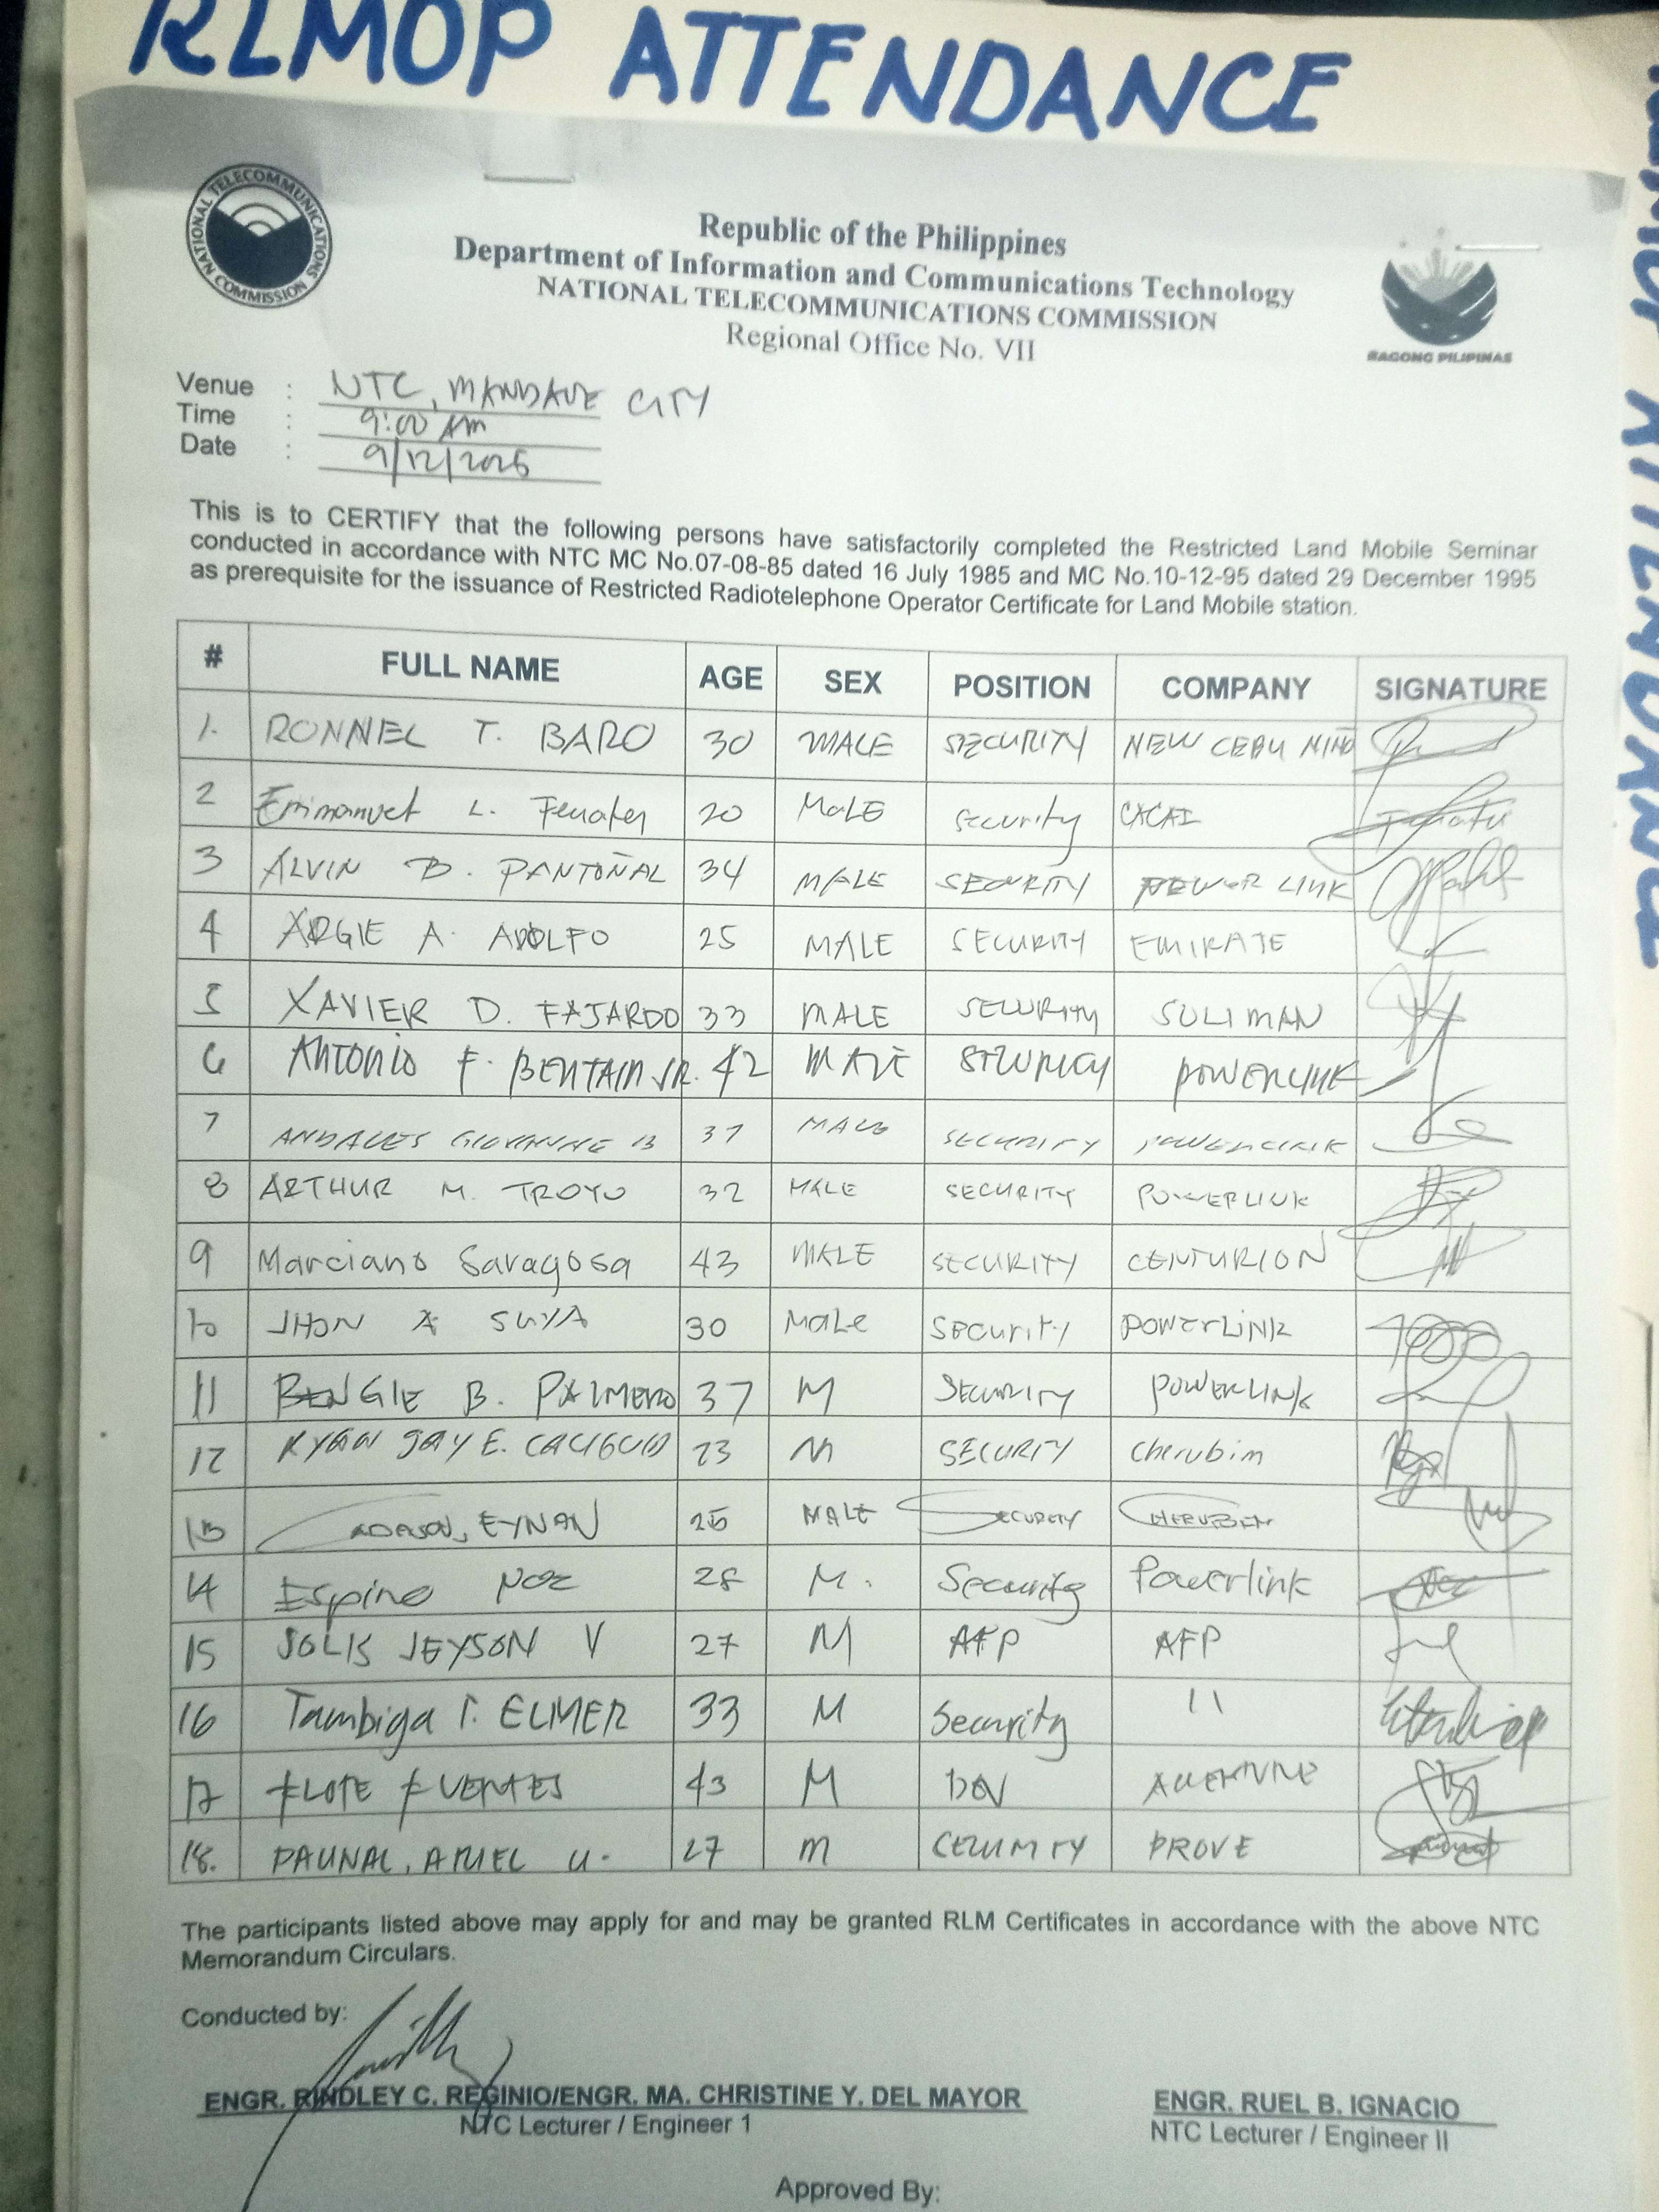 RLMOP ATTENDANCE
NATIONAL TELECOMMUNICATIONS COMMISSION
Republic of the Philippines
Department of Information and Communications Technology
NATIONAL TELECOMMUNICATIONS COMMISSION
Regional Office No. VII
BAGONG PILIPINAS
Venue : NTC, MANDAUE CITY
Time : 9:00 AM
Date : 9/12/2025
This is to CERTIFY that the following persons have satisfactorily completed the Restricted Land Mobile Seminar
conducted in accordance with NTC MC No.07-08-85 dated 16 July 1985 and MC No.10-12-95 dated 29 December 1995
as prerequisite for the issuance of Restricted Radiotelephone Operator Certificate for Land Mobile station.
# FULL NAME AGE SEX POSITION COMPANY SIGNATURE
1. RONNEL T. BARO 30 MALE SECURITY NEW CEBU
2 Emmanuel L. 20 MaLE Security
3 ALVIN B. PANTOÑAL 34 MALE SECURITY POWER LINK
4 ARGIE A. ADOLFO 25 MALE SECURITY EMIRATE
5 XAVIER D. FAJARDO 33 MALE SECURITY SULIMAN
6 Antonio F. BENTAIN JR. 42 MALE SECURITY POWERLINK
7 ANDALES GIOVANNE B 37 MALE SECURITY POWERLINK
8 ARTHUR M. TROYO 32 MALE SECURITY POWERLINK
9 Marciano Saragosa 43 MALE SECURITY CENTURION
10 JHON A SUYA 30 MaLe Security POWErLiNK
11 BENGIE B. PALMERO 37 M SECURITY POWERLINK
12 RYAN JAY E. 23 M SECURITY Cherubim
13 EYNAN 25 MALE SECURITY CHERUBIM
14 Espino NOE 28 M. Security Powerlink
15 SOLIS JEYSON V 27 M AFP AFP
16 Tambiga T. ELMER 33 M Security 11
17 FLOTE FUENTES 43 M
18. DAUNAL, ARIEL U. 27 M PROVE
The participants listed above may apply for and may be granted RLM Certificates in accordance with the above NTC
Memorandum Circulars.
Conducted by:
ENGR. RINDLEY C. REGINIO/ENGR. MA. CHRISTINE Y. DEL MAYOR
NTC Lecturer / Engineer 1
ENGR. RUEL B. IGNACIO
NTC Lecturer / Engineer II
Approved By: